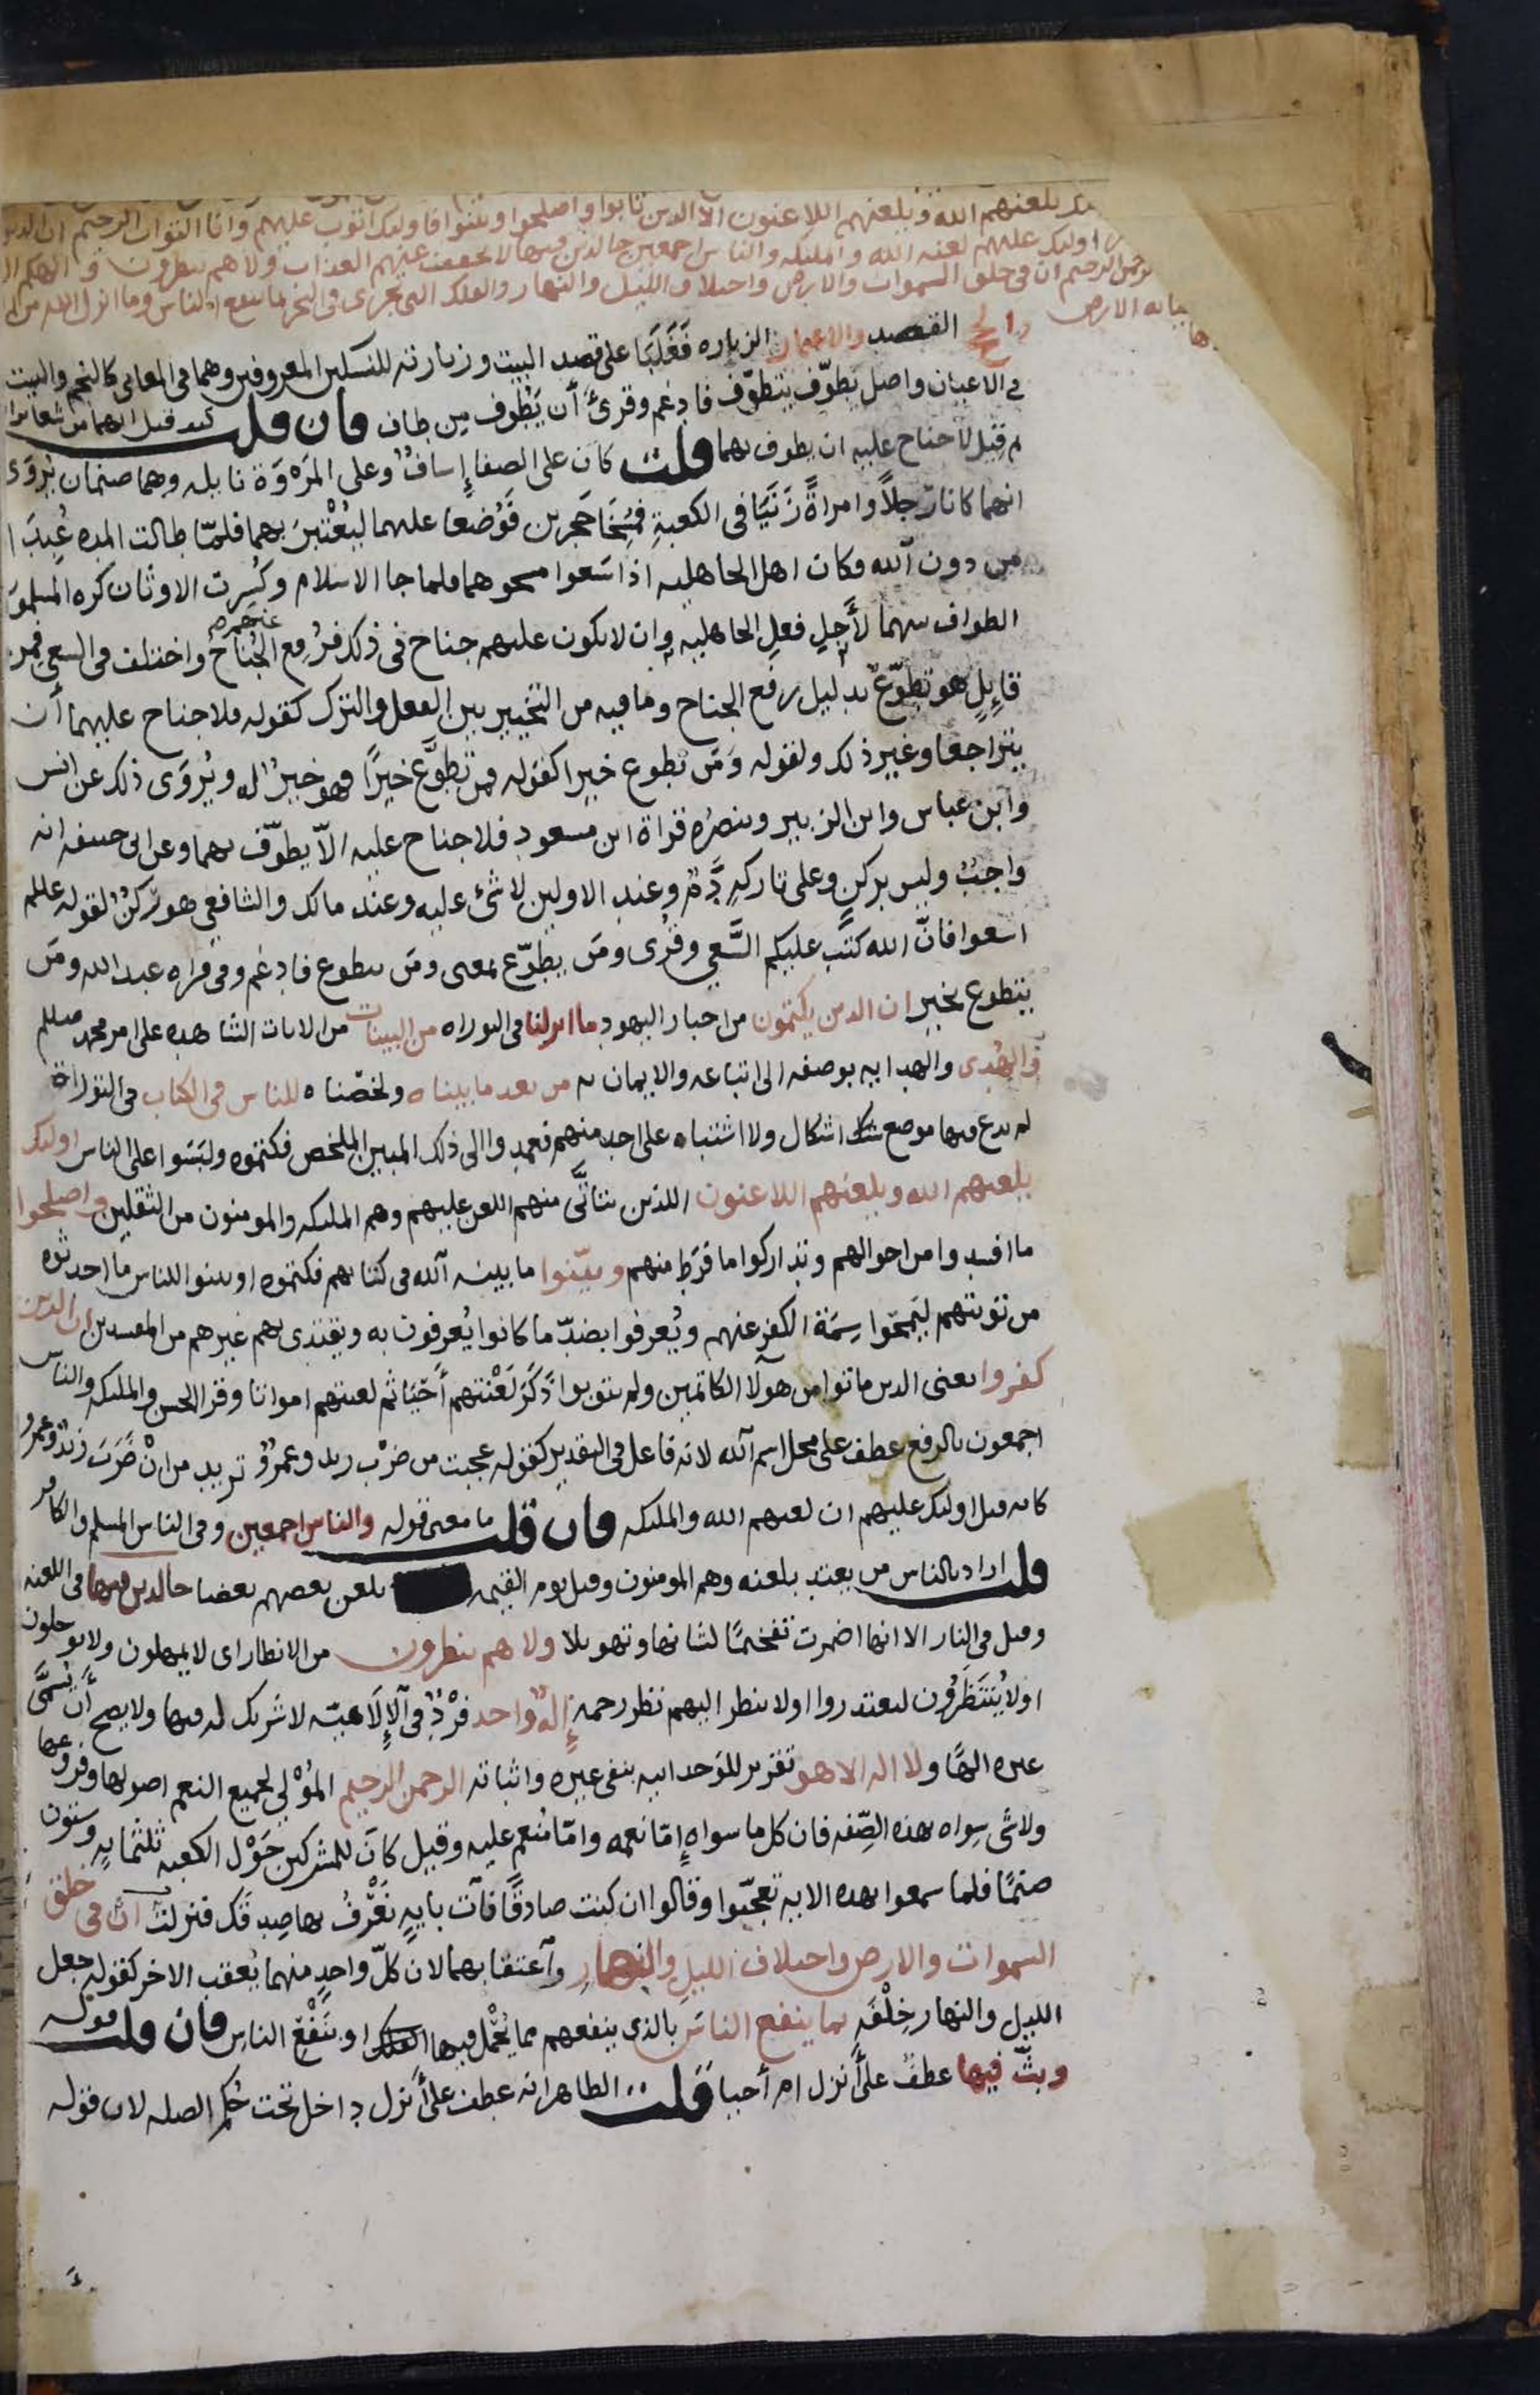 يلعنهم الله ويلعنهم اللاعنون الا الدين تابوا واصلحوا وبينوا فاولىك اتوب عليهم وانا التواب الرحيم ان الدين
اولىك عليهم لعنه الله والملىكه والناس اجمعين خالدين فيها لا يخفف عنهم العذاب ولا هم ينظرون والهكم
الرحيم ان فى خلق السموات والارض واختلاف الليل والنهار والفلك التى تجرى فى البحر بما ينفع الناس وما انزل الله من
به الارض
القصد والاعتمار الزياره فغَلَبَا على قصد البيت وزيارته للنسكين المعروفين وهما فى المعانى كالنجم والبيت
فى الاعيان واصل يطوّف يتطوّف فادغم وقرئ أن يَطُوف من طاف فان قلت كيف قيل انهما من شعائر
ثم قيل لا جناح عليه ان يطوف بهما قلت كان على الصفا إساف وعلى المَروَة نايله وهما صنمان يُروَى
انهما كانا رَجلاً وامراةً زَنَيَا فى الكعبةِ فمُسِخَا حَجرين فَوُضعا عليهما ليُعْتَبرَ بهما فلمّا طالت المده عُبِدَا
من دون الله فكان اهل الجاهليه اذا سَعوا مسحوهما فلما جا الاسلام وكُسِرت الاوثان كره المسلمون
الطواف بينهما لأَجلِ فعلِ الجاهليه وان لا يكون عليهم جناح فى ذلك فرُفع عنهم الجُناحُ واختلف فى السعى فمن
قايِلٍ هو تطوّع بدليل رفع الجناح وما فيه من التخيير بين الفعل والترك كقوله فلا جناح عليهما أن
يتراجعا وغير ذلك ولقوله وَمَن تطوع خيرا كقوله فمن تَطوَّع خيرًا فهو خيرٌ له ويُروَى ذلك عن انس
وابن عباس وابن الزبير وينصُره قراة ابن مسعود فلا جناح عليه الّا يطوّف بهما وعن ابى حنيفه انه
واجبٌ وليس بركن وعلى تاركهِ دَمٌ وعند الاولين لا شئ عليه وعند مالك والشافعى هو رُكنٌ لقوله علىلم
اسعوا فانّ الله كتَب عليكم السَّعى وقُرى ومَن يطوّع بمعنى ومَن يتطوع فادغم وفى قراه عبد الله ومَن
يتطوع بخيرٍ ان الدين يكتمون من احبار اليهود ما انزلنا فى التوراه من البينات من الايات الشاهده على امر محمد صلىلم
والهُدى والهدايه بوصفه الى اتباعه والايمان به من بعد ما بيناه ولخصّناه للناس فى الكتاب فى التوراة
لم يدع فيها موضع اشكال ولا اشتباه على احد منهم فعمدوا الى ذلك المبين الملخص فكتموه ولبَسَوا على الناس اولىك
يلعنهم الله ويلعنهم اللاعنون اللذين يتاتَّى منهم اللعن عليهم وهم الملىكه والمومنون من الثقلين واصلحوا
ما افسدوا من احوالهم وتداركوا ما فَرَط منهم وبيّنوا ما بينه الله فى كتابهم فكتموه او بينوا للناس ما احدثوه
من توبتهم ليَمحُوا سِمَة الكفر عنهم ويُعرفوا بضدّ ما كانوا يُعرفون به ويقتدى بهم غيرهم من المفسدين ان الدين
كفروا يعنى الدين ماتوا من هولا الكاتمين ولم يتوبوا ذَكَرَ لَعْنتهم أحْيَا ثم لعنتهم امواتا وقرا الحسن والملىكه والناس
اجمعون بالرفع عطف على محل اسم الله لانه فاعل فى التقدير كقوله عجبت من ضرْب زيد وعمرٌو تريد من انْ ضَرَبَ زيدٌ وعمرٌو
كانه قيل اولىك عليهم ان لعنهم الله والملىكه فان قلت ما معنى قوله والناس اجمعين وفى الناس المسلم والكافر
قلت اراد بالناس من يعتد بلعنه وهم المومنون وقيل يوم القيمه يلعن بعضهم بعضا خالدين فيها فى اللعنه
وقيل فى النار الا انها اضمرت تفخيمًا لشانها وتهويلا ولا هم ينظرون من الانظار اى لا يمهلون ولا يوجلون
او لا يُنتَظَرُون ليعتدروا او لا ينظر اليهم نظر رحمه إِلهٌ واحد فرْدٌ فى الإِلَاهيّه لا شريك له فيها ولا يصح أن يُسَمَّى
غيره الهًا ولا اله الا هو تقرير للوَحدانيه بنفى غيره واثباته الرحمن الرحيم المُوْلِى لجميع النعم اصولها وفروعها
ولا شى سِواه بهذه الصِّفه فان كل ما سواه إمّا نعمه وامّا مُنعم عليه وقيل كان للمشركين حَوْل الكعبه ثلثمايه وستون
صنمًا فلما سمعوا بهده الايه تعجّبوا وقالوا ان كنت صادقًا فآت بايهٍ نَعْرِفُ بها صِدقَك فنزلت ان فى خلق
السموات والارض واختلاف الليل والنهارِ وآعتقابهما لان كلّ واحدٍ منهما يُعقب الاخر كقوله جعل
الليل والنهار خِلْفَه بما ينفع الناسَ بالذى ينفعهم مما يُحْمل فيها او بنَفْع الناس فان قلت قوله
وبثّ فيها عطفٌ على أنزل ام أحيا قلت الظاهر انه عطف على أنزل داخل تحت حُكم الصله لان قوله